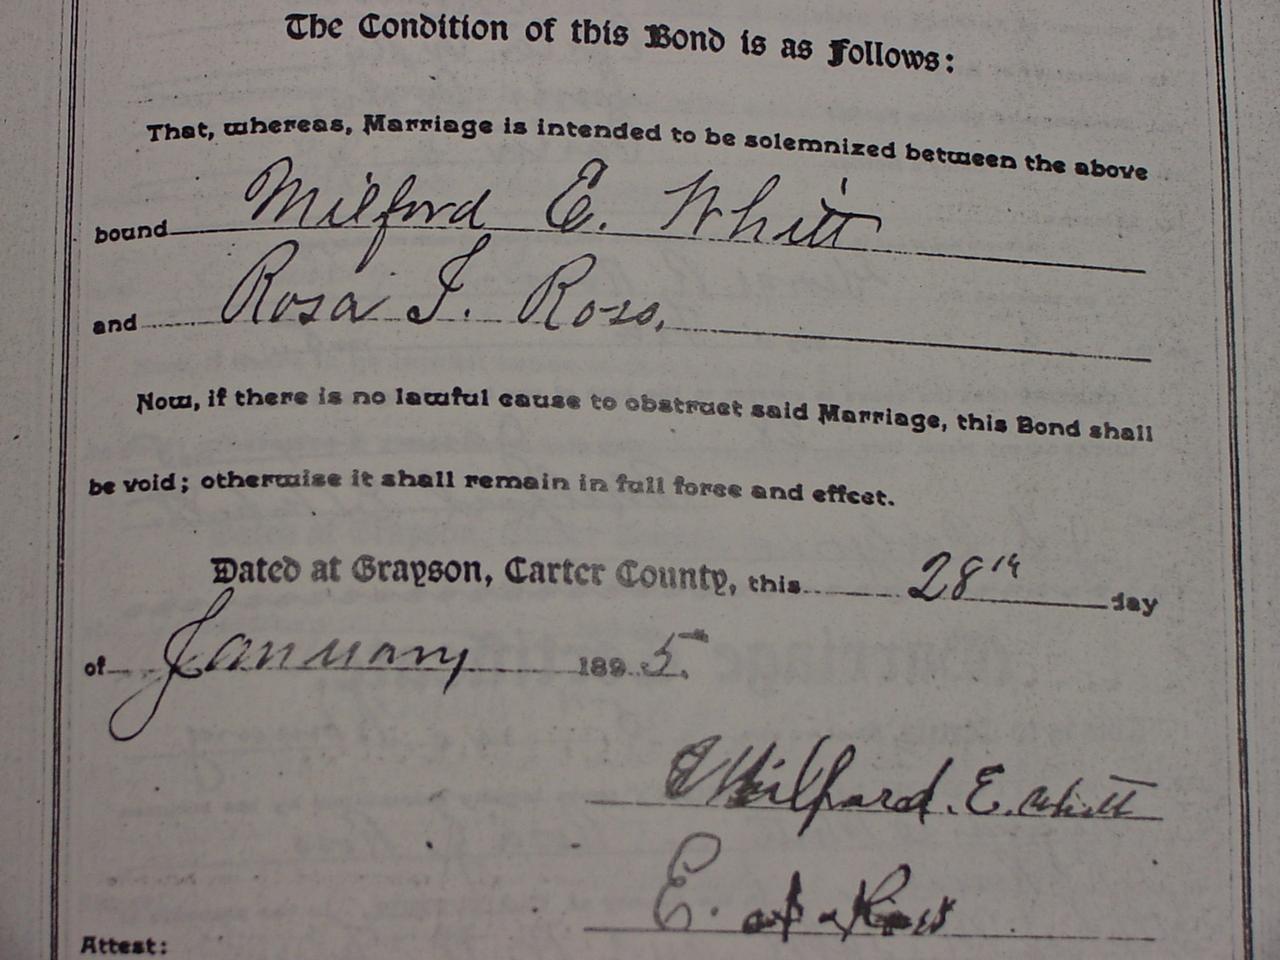 The Condition of this Bond is as Follows:
That, whereas, Marriage is intended to be solemnized between the above
bound Milford E. Whitt
and Rosa F. Ross,
Now, if there is no lawful cause to obstruct said Marriage, this Bond shall
be void; otherwise it shall remain in full force and effect.
Dated at Grayson, Carter County, this 28th day
of January 1895.
Milfard. E. Whitt
E.
Attest: